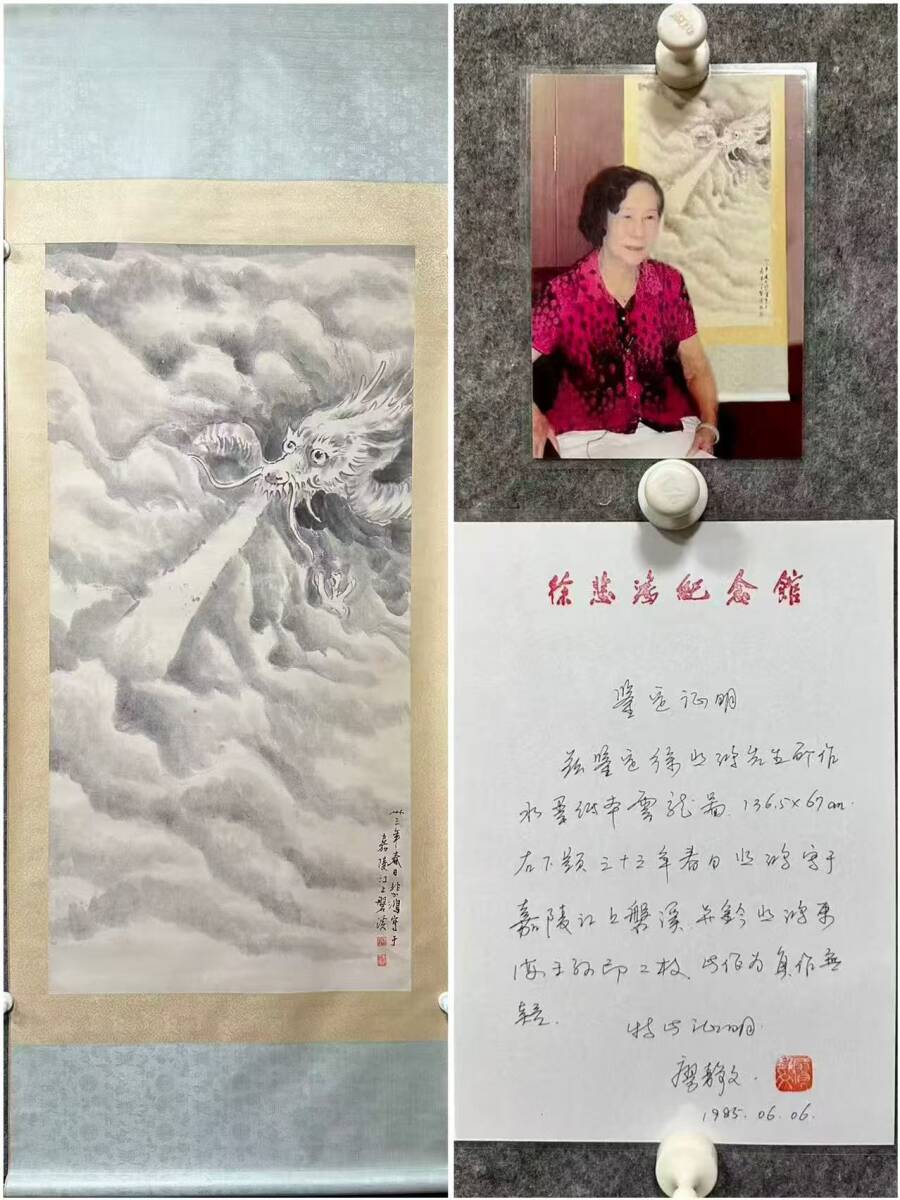 卅三年春日悲鴻寫于
嘉陵江上磐溪
徐悲鴻紀念館
鑒定证明
兹鑒定徐悲鸿先生所作
水墨纸本雲龍图 136.5×67cm.
右下题三十三年春日悲鸿写于
嘉陵江上磐溪并鈐悲鸿東
海王孙印二枚 此作为真作無
疑.
特此证明.
廖静文.
1985.06.06.